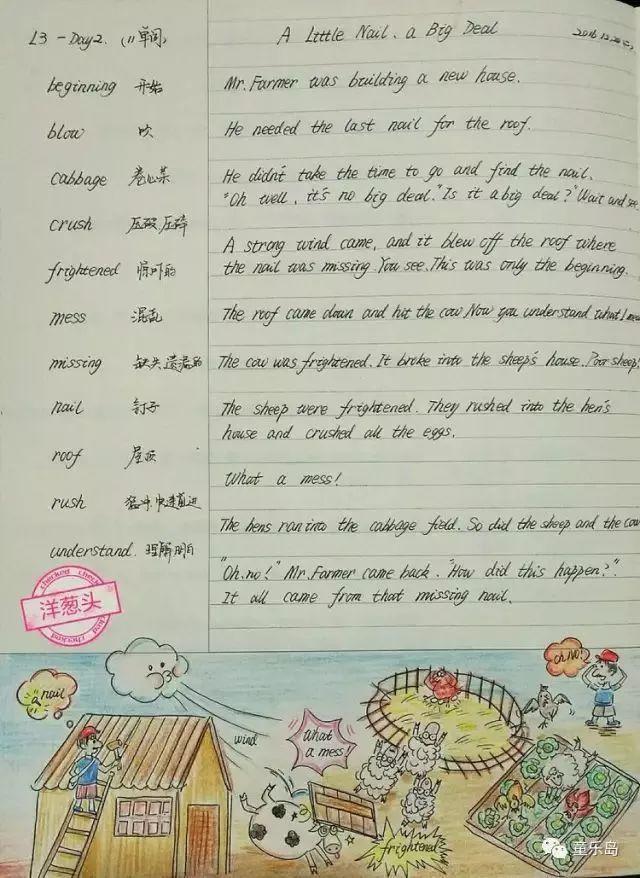 L3 - Day2. (11单词)
A Little Nail, a Big Deal
beginning 开始
blow 吹
cabbage 卷心菜
crush 压破,压碎
frightened 惊吓的
mess 混乱
missing 缺失,遗漏的
nail 钉子
roof 屋顶
rush 猛冲,快速直进
understand. 理解,明白
Mr. Farmer was building a new house.
He needed the last nail for the roof.
He didn't take the time to go and find the nail.
"Oh well, it's no big deal." Is it a big deal? Wait and see.
A strong wind came, and it blew off the roof where
the nail was missing. You see. This was only the beginning.
The roof came down and hit the cow. Now you understand what I mean
The cow was frightened. It broke into the sheep's house. Poor sheep!
The sheep were frightened. They rushed into the hen's
house and crushed all the eggs.
What a mess!
The hens ran into the cabbage field. So did the sheep and the cow
"Oh, no!" Mr. Farmer came back. "How did this happen?".
It all came from that missing nail.
checked
洋葱头
checked
a nail
wind
What
a mess
oh NO!
frightened
童乐岛